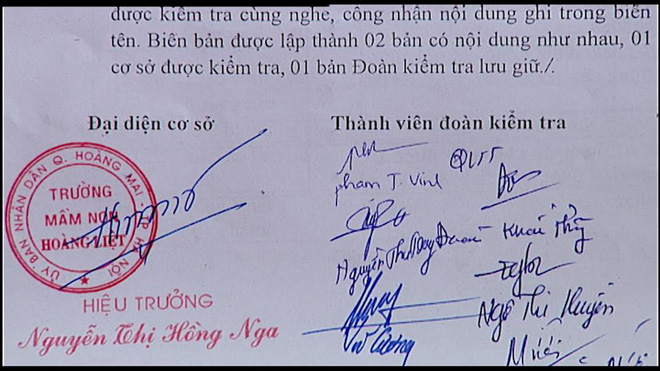 được kiểm tra cùng nghe, công nhận nội dung ghi trong biên
tên. Biên bản được lập thành 02 bản có nội dung như nhau, 01
cơ sở được kiểm tra, 01 bản Đoàn kiểm tra lưu giữ./.
Đại diện cơ sở
Thành viên đoàn kiểm tra
ỦY BAN NHÂN DÂN Q. HOÀNG MAI - TP HÀ NỘI
TRƯỜNG
MẦM NON
HOÀNG LIỆT
HIỆU TRƯỞNG
Nguyễn Thị Hồng Nga
phạm T. Vinh
Nguyễn Thu
Ngô Thị Huyền
Vũ Cường